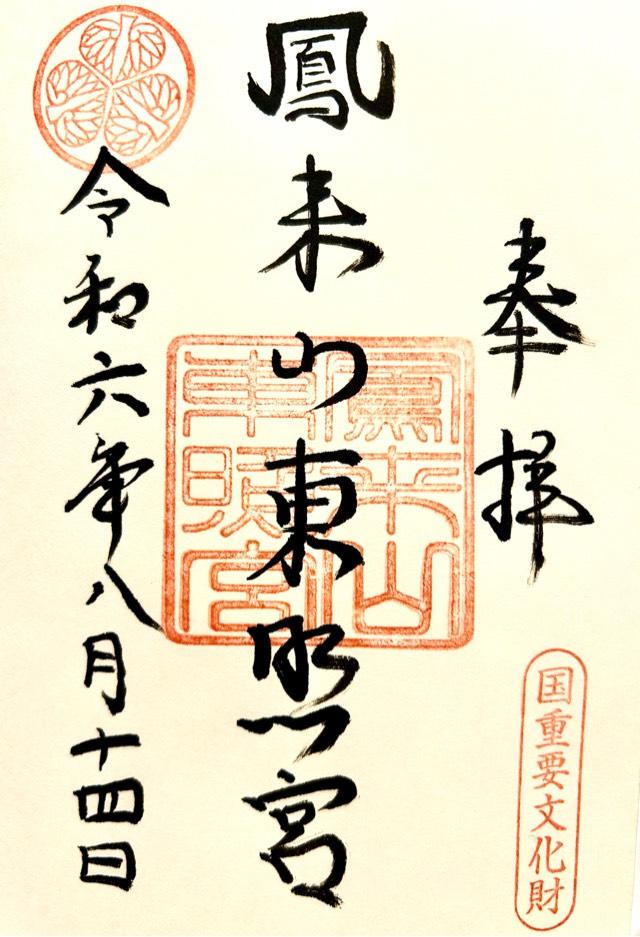 奉拝
国重要文化財
鳳来山東照宮
鳳来山
東照宮
令和六年八月十四日